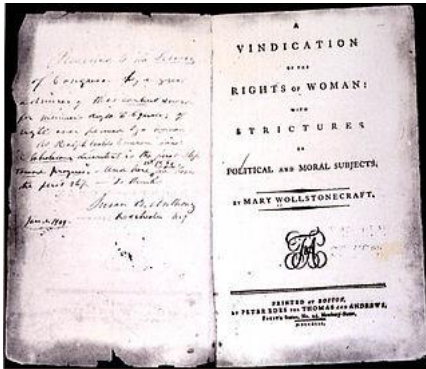 of Congress
admirer
for woman's right to Equality of
right ever penned by a woman
As Ralph Waldo Emerson said
A wholesome discontent is the first step
toward progress - And here
the first step
Susan B. Anthony
Jan. 1, 1904.
Rochester N.Y.
A
VINDICATION
OF THE
RIGHTS OF WOMAN:
WITH
STRICTURES
ON
POLITICAL AND MORAL SUBJECTS,
BY MARY WOLLSTONECRAFT.
PRINTED AT BOSTON,
BY PETER EDES FOR THOMAS AND ANDREWS,
FAUST'S Statue, No. 45, Newbury-Street,
MDCCXCII.